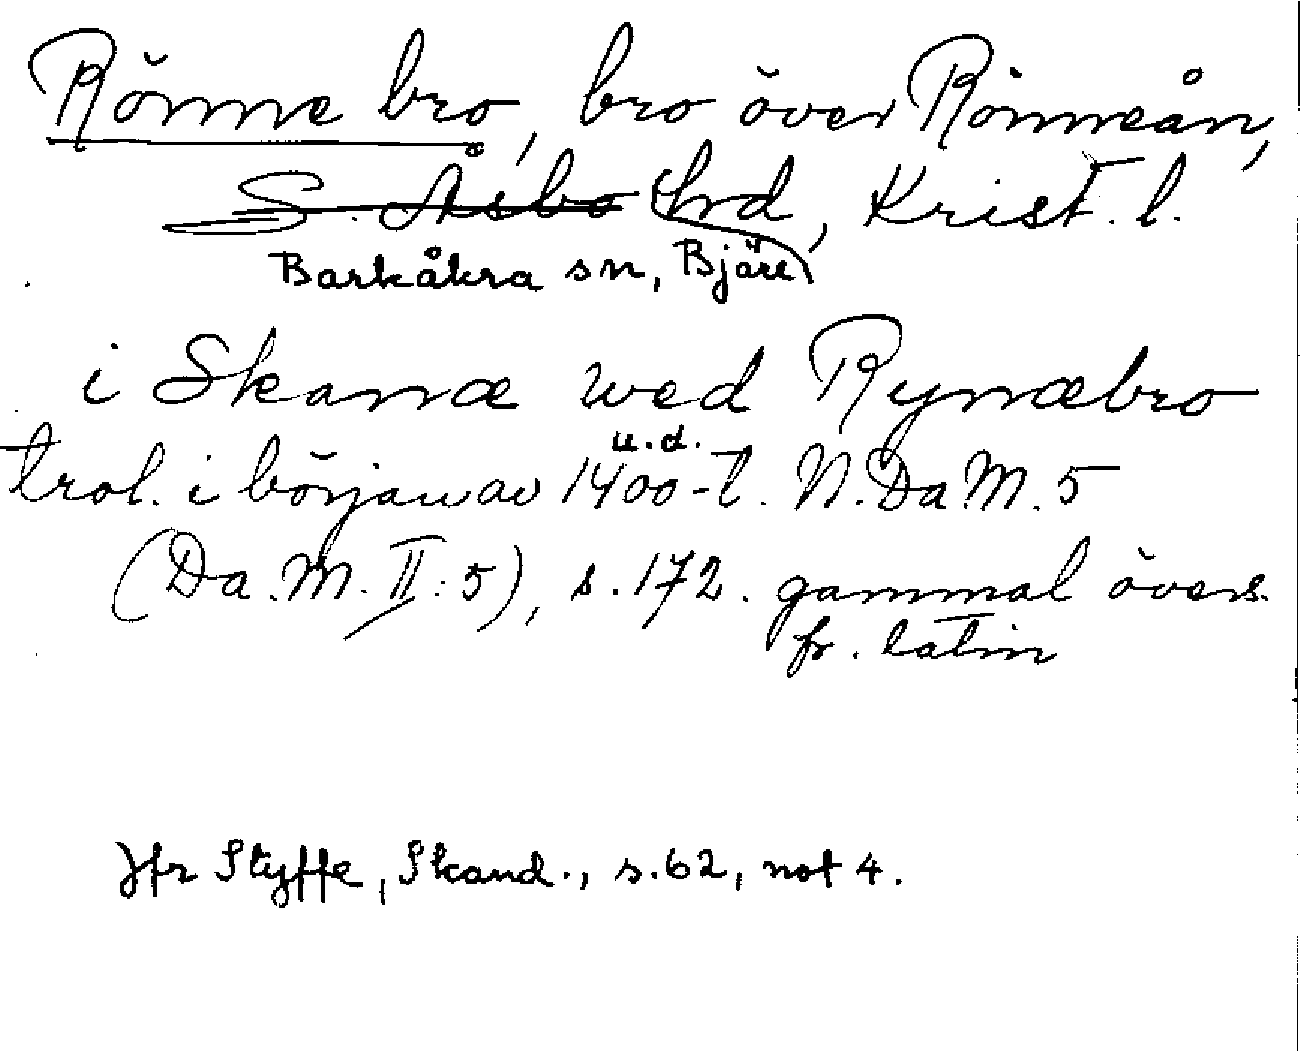 Rönne bro, bro över Rönneån,
S. Åsbo hrd, Krist. l.
Barkåkra sn, Bjäre
i Skanæ wed Rynæbro
u.d.
trol. i början av 1400-t. N.Da.M. 5
(Da.M. II:5), s.172. gammal övers.
fr. latin
Jfr Styffe, Skand., s.62, not 4.